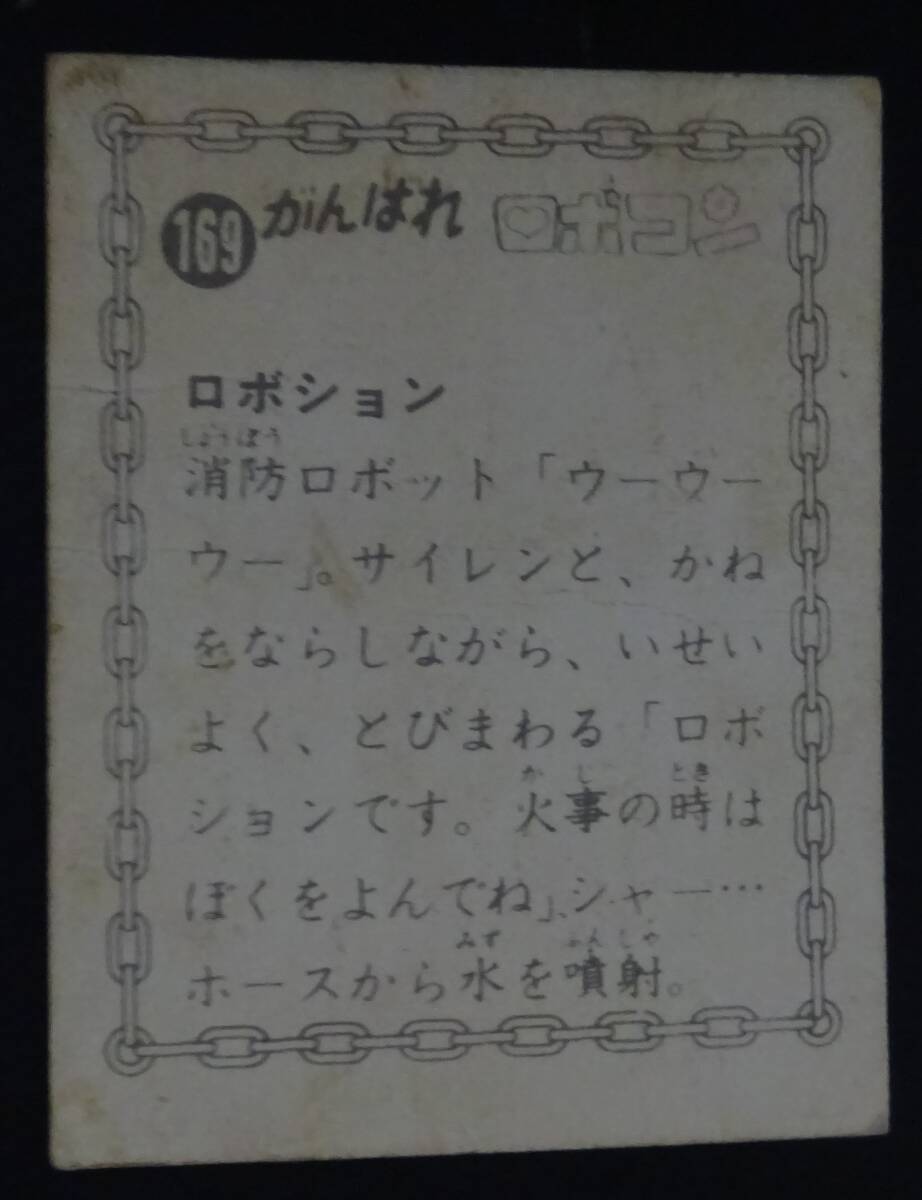 169 がんばれ ロボコン
ロボション
しょうぼう
消防ロボット「ウーウー
ウー」。サイレンと、かね
をならしながら、いせい
よく、とびまわる「ロボ
かじ とき
ションです。火事の時は
ぼくをよんでね」シャー…
みず ふんしゃ
ホースから水を噴射。